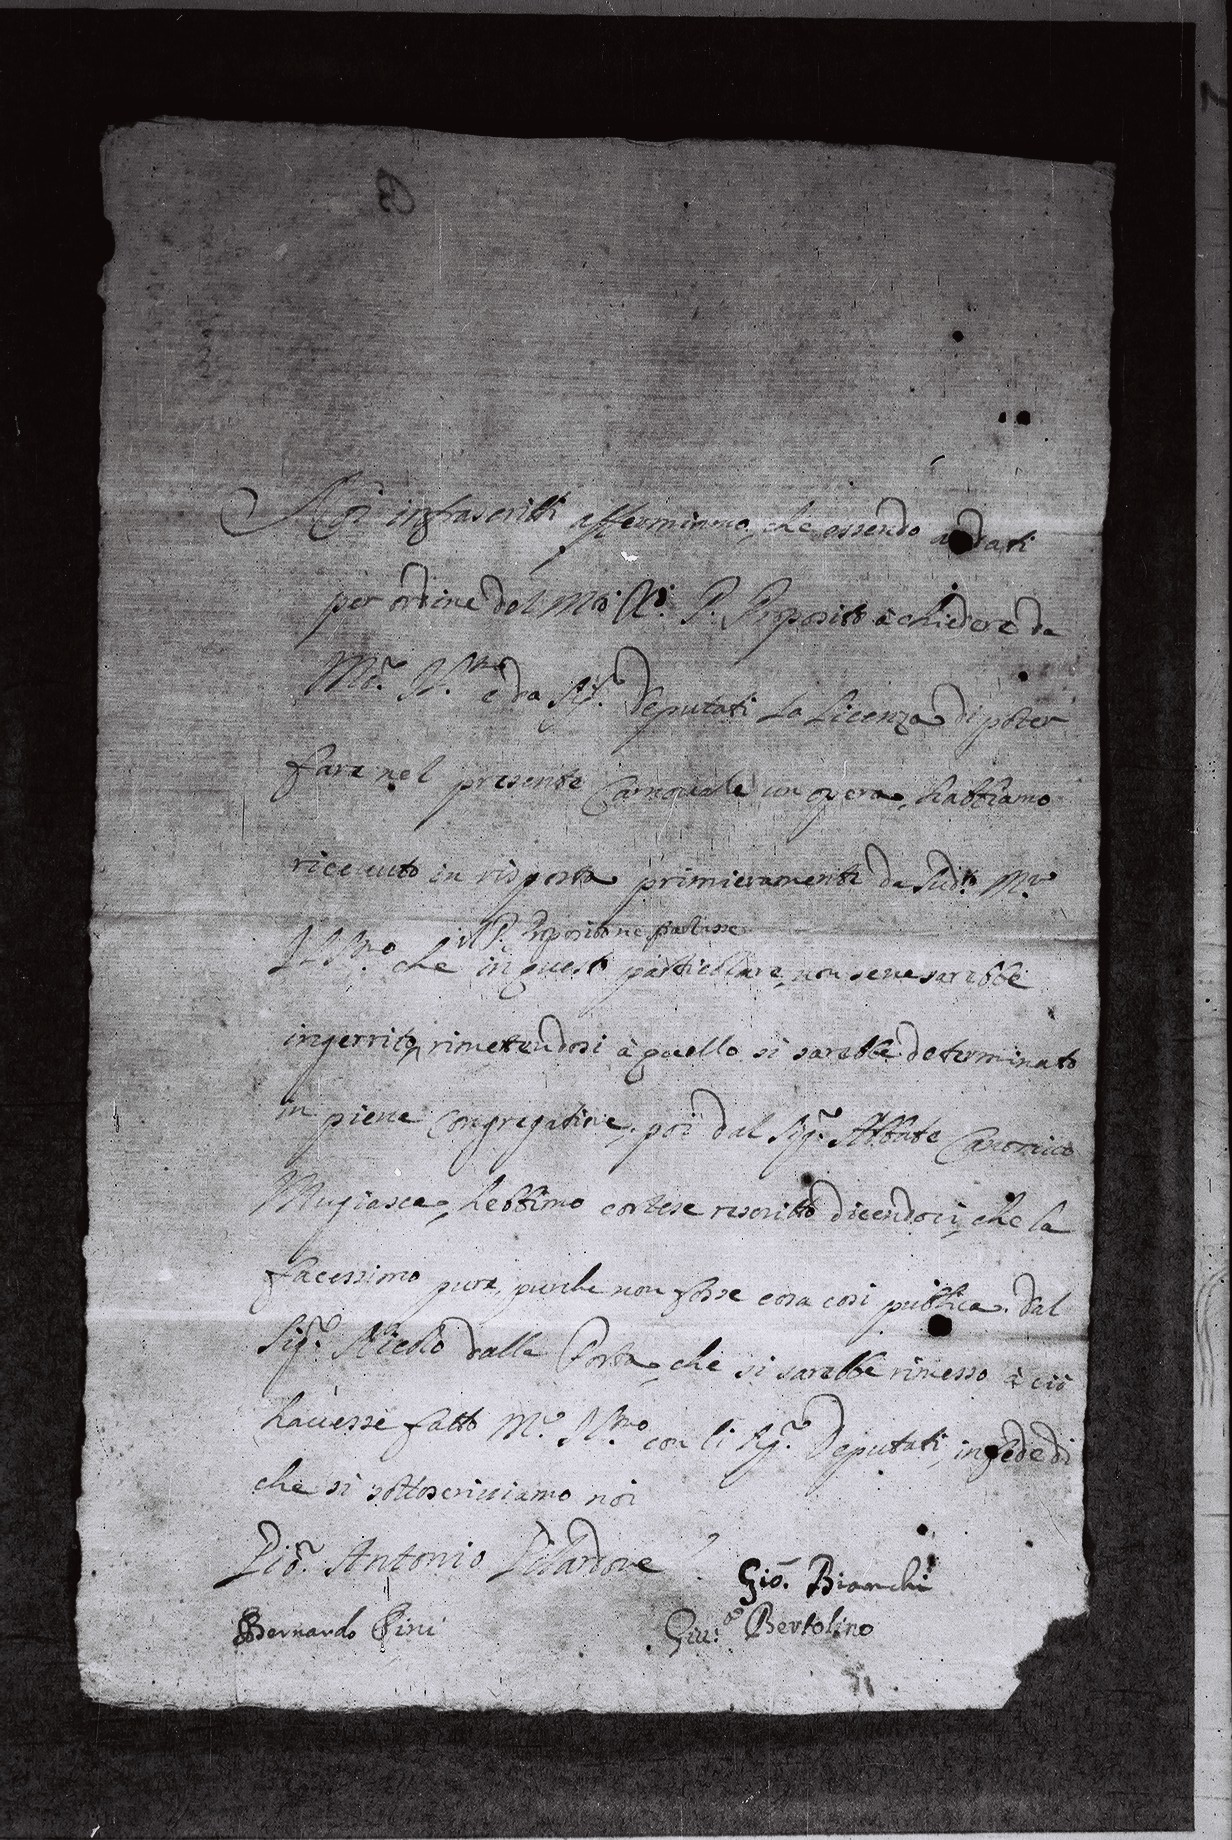 Noi infrascritti affermiamo, che essendo andati
per ordine del Mo: Rdo: P. Proposito à chiedere da
Mr. Illmo e da Sigri. Deputati la licenza di poter
fare nel presente Carnouale un opera, habbiamo
riceuuto in risposta primieramente da Sudto. Mr.
il P. Proposito ne facesse
Illmo che in questo particolare, non sene sarebbe
ingerrito, rimettendosi à quello si sarebbe determinato
in piene Congregatione, poi dal Sigr. Abbate Canonico
Mugiasca, hebbimo cortese rescritto dicendoci, che la
facessimo pure, purche non fosse cosa cosi publica. dal
Sigr. Nicolò dalla Porta, che si sarebbe rimesso à ciò
hauesse fatto Mr. Illmo con li Sigri. Deputati, in fede di
che si sottoscriuiamo noi
Gio. Antonio
Gio. Bianchi
Bernardo Pini
Giu: Bertolino